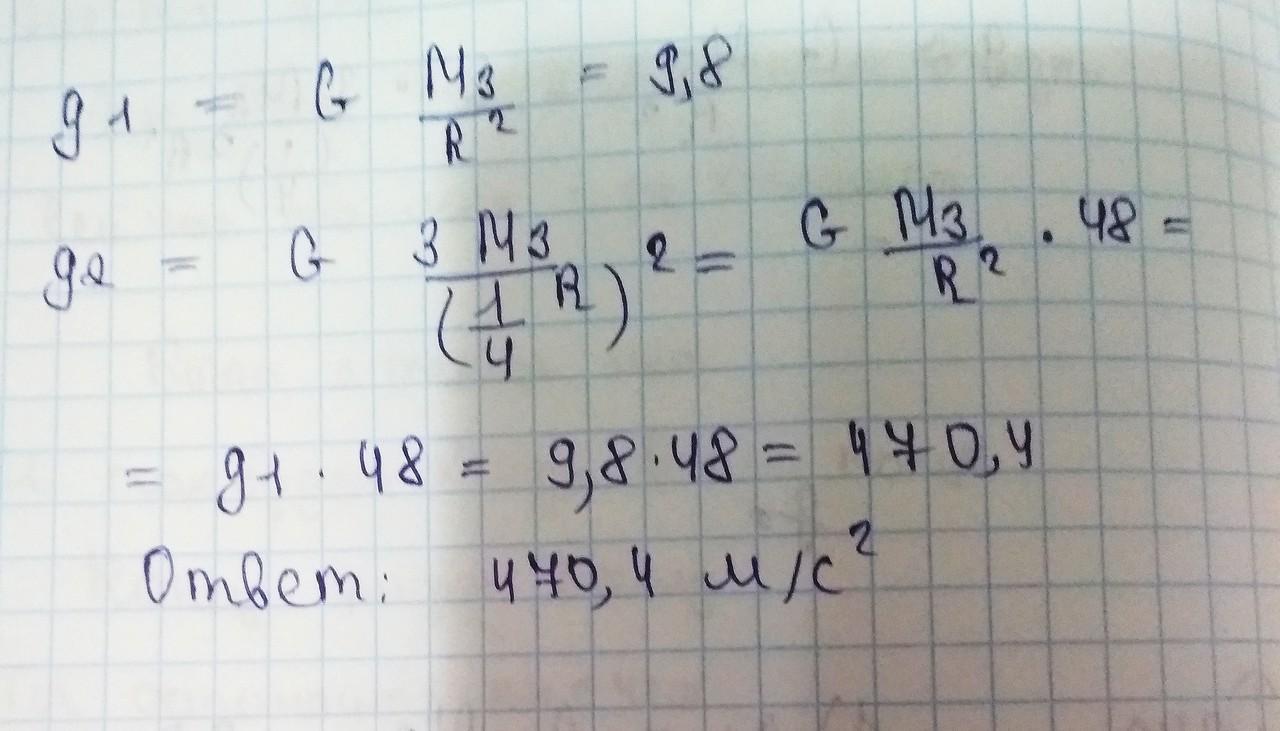 g1 = G Mз/R² = 9,8
g2 = G 3 Mз/(1/4 R)² = G Mз/R² · 48 =
= g1 · 48 = 9,8 · 48 = 470,4
Ответ: 470,4 м/с²